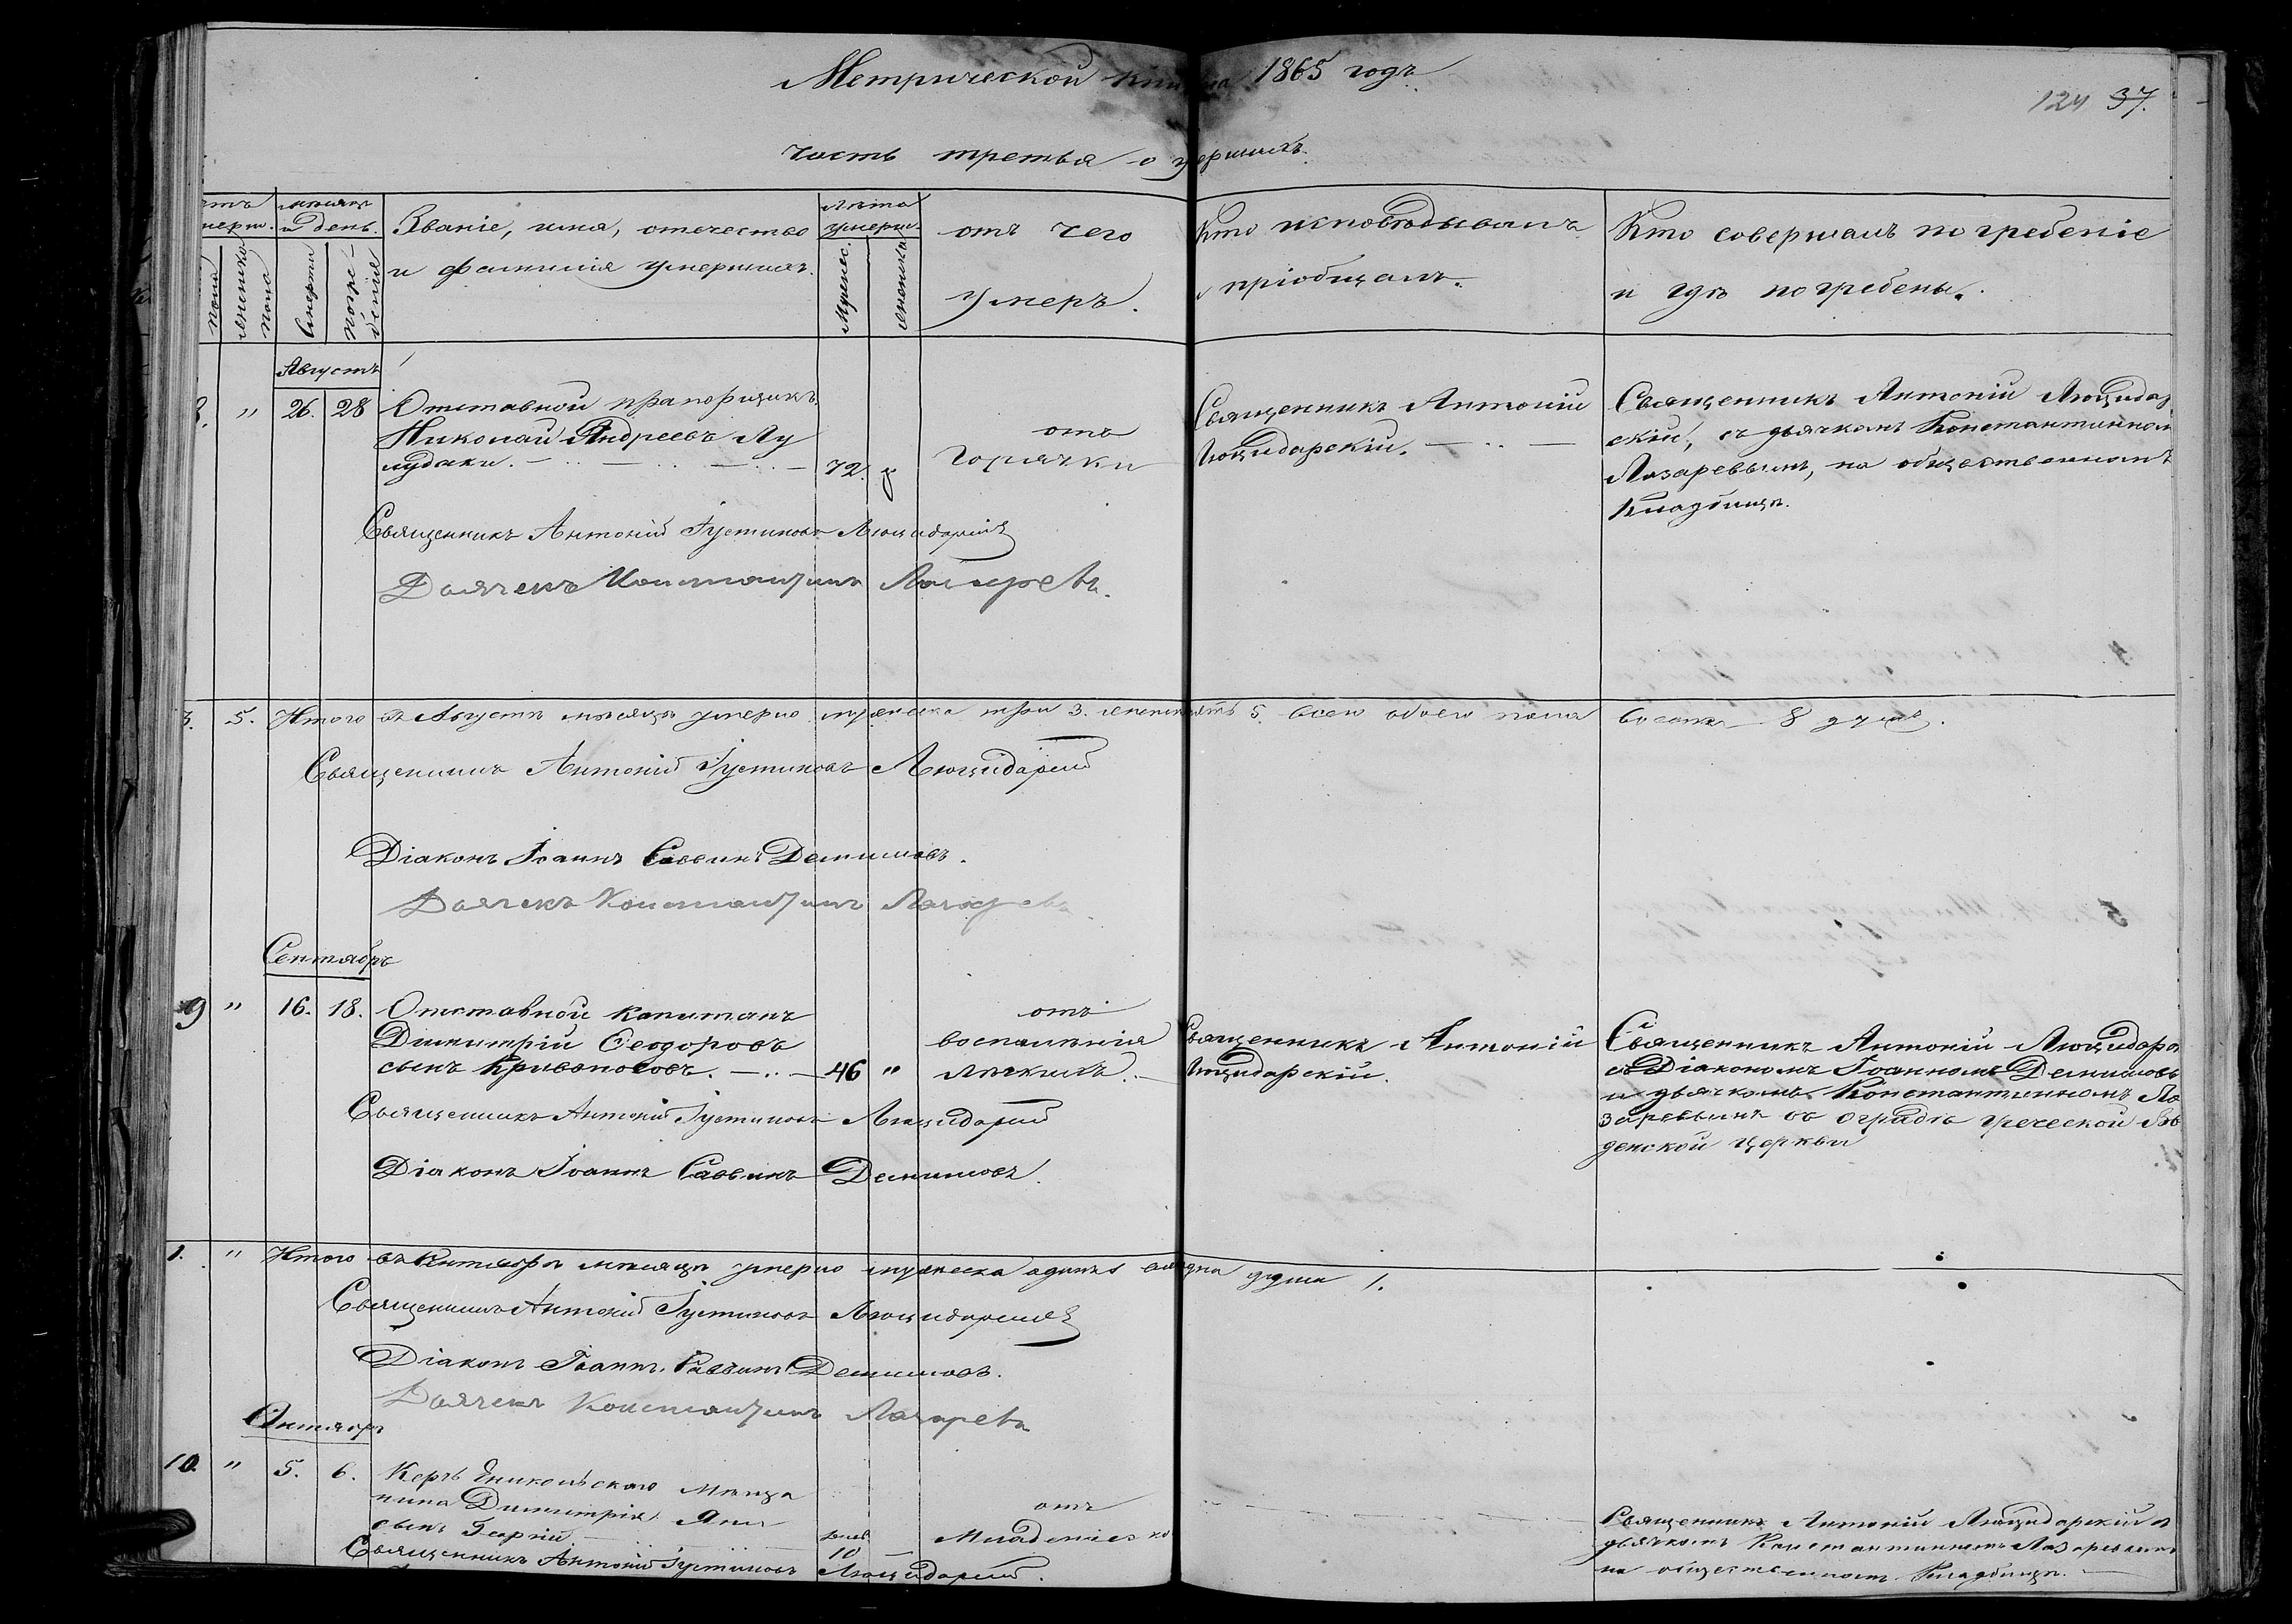 Метрической на 1865 годъ
124 37.
часть третья о умершихъ.
мѣсяцъ
и день.
Званіе, имя, отечество
и фамилія умершихъ.
Лѣта
умерш.
отъ чего
умеръ.
Кто исповѣдывалъ
и пріобщалъ.
Кто совершалъ погребеніе
и гдѣ погребены.
пола
женскаго
пола
Смерти
погре-
бенія
Мужес.
женскаго
Августъ
" 26. 28
Отставной прапорщикъ
Николай Андреевъ Лу
лудаки.
72.
отъ
горячки
Священникъ Антоній
Люцидарскій.
Священникъ Антоній Люцидар
скій, съ дьячкомъ Константином
Лазаревымъ, на общественномъ
Кладбищѣ.
Священникъ Антоній Іустиновъ Люцидарскій
Дьячекъ Константинъ Лазаревъ.
3. 5. Итого въ Августѣ мѣсяцѣ умерло мужеска три 3. женска пять 5. всего обоего пола восемь 8 душъ.
Священникъ Антоній Іустиновъ Люцидарскій
Діаконъ Іоаннъ Саввинъ Демишовъ.
Дьячекъ Константинъ Лазаревъ
Сентябрь
9 " 16. 18.
Отставной капитанъ
Димитрій Ѳеодоровъ
сынъ Кривоносовъ.
46 "
отъ
воспаленія
лёгкихъ.
Священникъ Антоній
Люцидарскій.
Священникъ Антоній Люцидарс
съ Діакономъ Іоанномъ Демишовъ
и дьячкомъ Константиномъ Ла
заревымъ въ оградѣ греческой Вве
денской церкви
Священникъ Антоній Іустиновъ Люцидарскій
Діаконъ Іоаннъ Саввинъ Демишовъ.
1. " Итого въ Сентябрѣ мѣсяцѣ умерло мужеска одинъ одна душа 1.
Священникъ Антоній Іустиновъ Люцидарскій
Діаконъ Іоаннъ Саввинъ Демишовъ.
Дьячекъ Константинъ Лазаревъ
Октябрь
10. " 5. 6.
Керчь Еникольскаго Мѣща
нина Димитрія Яни
сынъ Георгій
10
отъ
Младенческ
Священникъ Антоній Люцидарскій съ
дьячкомъ Константиномъ Лазаревымъ
на общественномъ Кладбищѣ.
Священникъ Антоній Іустиновъ Люцидарскій.